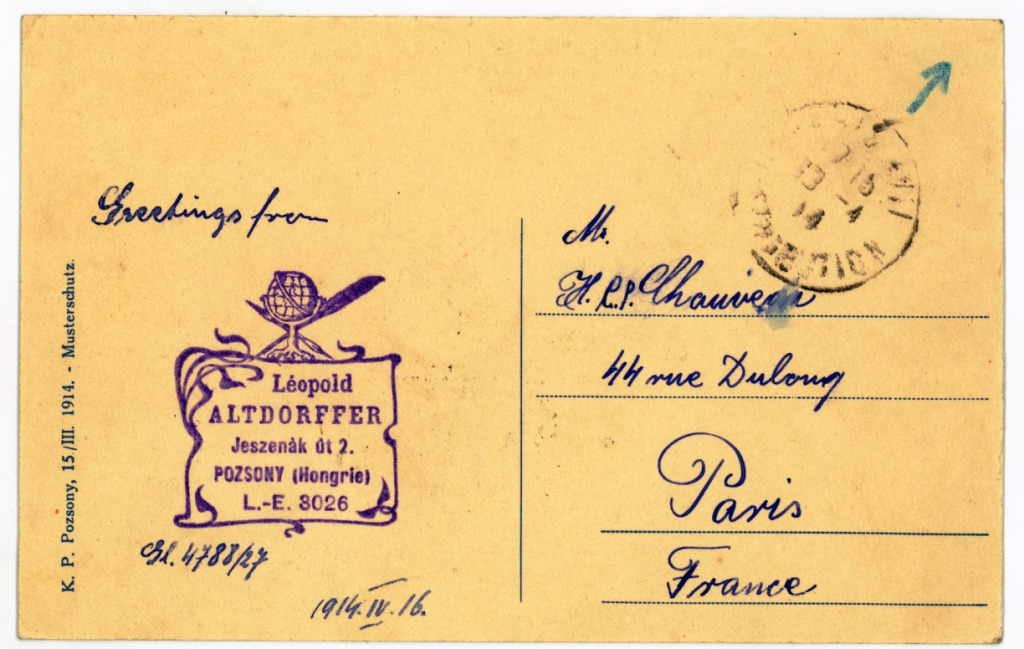 Greetings from
Mr.
H. C. P. Chauveau
44 rue Dulong
Paris
France
Léopold
ALTDORFFER
Jeszenák út 2.
POZSONY (Hongrie)
L.-E. 3026
Gl. 4788/27
1914. IV. 16.
K. P. Pozsony, 15/III. 1914. - Musterschutz.